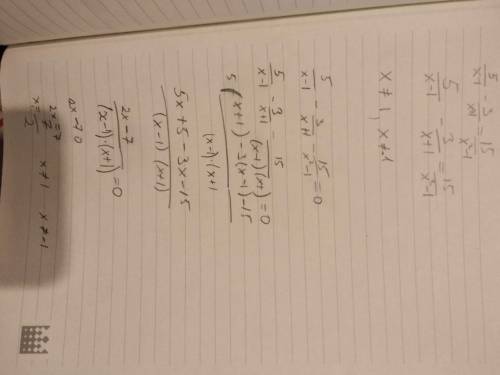 5/(x-1) - 3/(x+1) = 15/(x²-1)
5/(x-1) - 3/(x+1) = 15/(x²-1)
x ≠ 1, x ≠ -1
5/(x-1) - 3/(x+1) - 15/(x²-1) = 0
5/(x-1) - 3/(x+1) - 15/((x-1)(x+1)) = 0
5(x+1) - 3(x-1) - 15
(x-1)·(x+1
5x + 5 - 3x - 15
(x-1)·(x+1)
(2x - 7)/((x-1)·(x+1)) = 0
2x - 7 0
2x = 7
x = 7/2 x ≠ 1 x ≠ -1